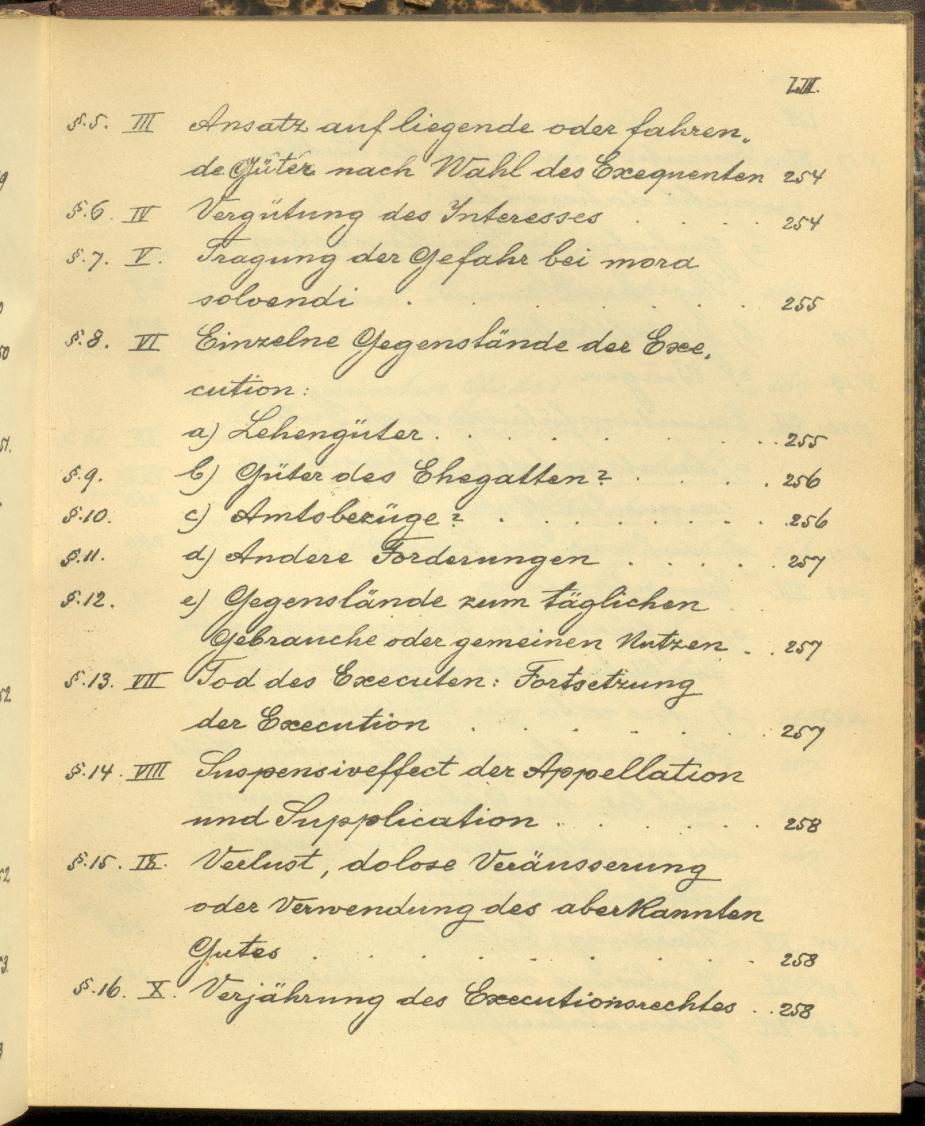 LIII.
§.5. III Ansatz auf liegende oder fahren„
de Güter nach Wahl des Exequenten 254
§.6. IV Vergütung des Interesses . . . . 254
§.7. V. Tragung der Gefahr bei mora
solvendi . . . . . . . . 255
§.8. VI Einzelne Gegenstände der Exe„
cution:
a) Lehengüter . . . . . . . . . 255
§.9. b) Güter des Ehegatten? . . . . . 256
§.10. c) Amtsbezüge? . . . . . . . . . 256
§.11. d) Andere Forderungen . . . . . 257
§.12. e) Gegenstände zum täglichen
Gebrauche oder gemeinen Nutzen . . 257
§.13. VII Tod des Executen: Fortsetzung
der Execution . . . . . . . 257
§.14. VIII Suspensiveffect der Appellation
und Supplication . . . . . . . 258
§.15. IX. Verlust, dolose Veräusserung
oder Verwendung des aberkannten
Gutes . . . . . . . . . . . 258
§.16. X. Verjährung des Executionsrechtes . . 258